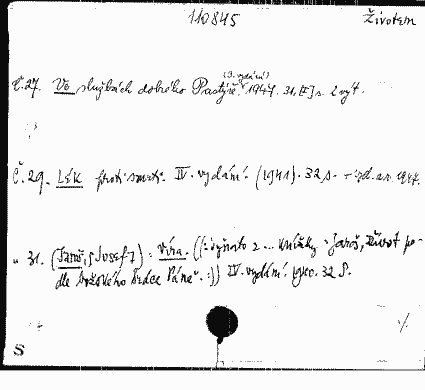 110845 Životem
(3. vydání)
Č. 27. Ve službách dobrého Pastýře. 1947. 31, [I] s. 2 výt.
Č. 29. Lék proti smrti. IV. vydání. (1941). 32 s. + vyd. a r. 1947.
" 31. (Jaroš, Josef) : Víra. ((: vyňato z ... knížky - Jaroš, Život po-
dle božského Srdce Páně. :)) IV. vydání. 32 s.
%
S